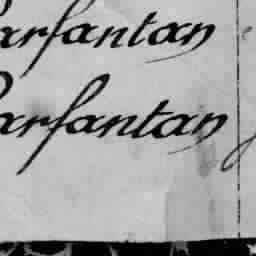 Parfantan
Parfantan